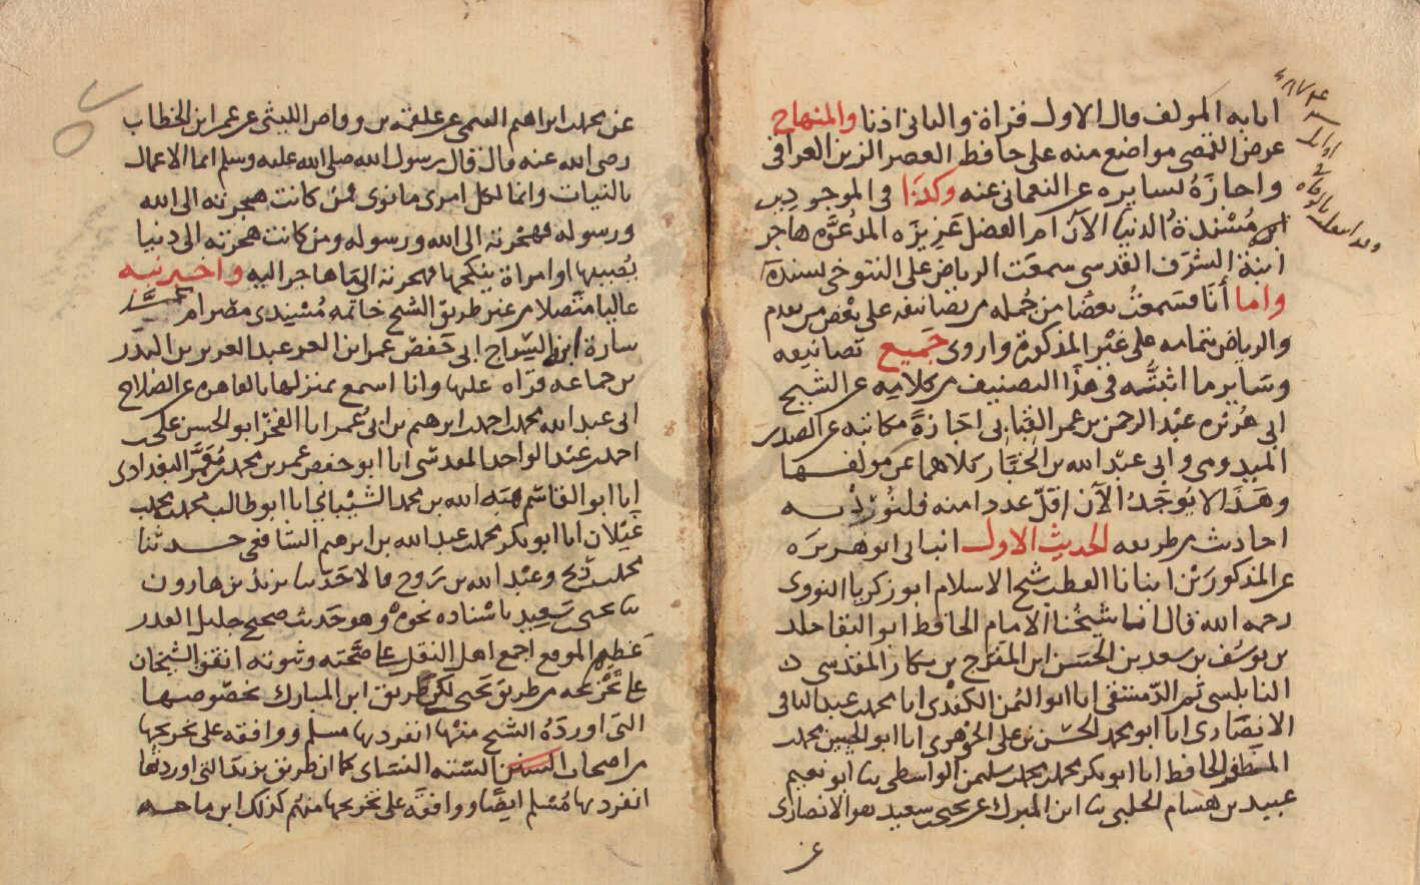 انا به المولف قال الاول قراة والثاني اذنا والمنهاج
عرض التقصي مواضع منه على حافظ العصر الزين العراقي
واجازة لسايره عن النعماني عنه وكذا في الموجودين
مسندة الدنيا الآن ام الفضل عزيزة المدعوه هاجر
ابنة الشرف القدسي سمعت الرياض على التنوخي بسنده
واما أنا فسمعت بعضا من جمله من تصانيفه على بعض من تقدم
والرياض بتمامه على غير المذكورة واروى جميع تصانيفه
وساير ما اثبته في هذا التصنيف من كلامه عن الشيخ
ابي هريرة عبد الرحمن بن عمر القبابي اجازة مكاتبه عن الصدر
الميدومي وابي عبد الله بن الخباز كلاهما عن مولفها
وهذا لا يوجد الآن اقل عددا منه فلنورد
احاديث من طريقه الحديث الاول انباني ابو هريره
عن المذكورين انبانا القطب شيخ الاسلام ابو زكريا النووي
رحمه الله قال انبا شيخنا الامام الحافظ ابو البقا خلد
بن يوسف بن سعد بن الحسن ابن المفرج بن بكار المقدسي
النابلسي ثم الدمشقي انا ابو اليمن الكندي انا محمد بن عبد الباقي
الانصاري انا ابو محمد الحسن بن على الجوهري انا ابو الحسين محمد بن
المظفر الحافظ انا ابو بكر محمد بن محمد بن سليمن الواسطي ثنا ابو نعيم
عبيد بن هشام الحلبي ثنا ابن المبرك عن يحيى بن سعيد هو الانصاري
عن
عن محمد بن ابراهيم التيمي عن علقمة بن وقاص الليثي عن عمر ابن الخطاب
رضى الله عنه قال قال رسول الله صلى الله عليه وسلم انما الاعمال
بالنيات وانما لكل امرى ما نوى فمن كانت هجرته الى الله
ورسوله فهجرته الى الله ورسوله ومن كانت هجرته الى دنيا
يصيبها او امراة ينكحها فهجرته الى ما هاجر اليه واخبرتنيه
عاليا متصلا من غير طريق الشيخ خاتمة مسندي مصر ام
سارة ابنة السراج ابي حفص عمر ابن العز عبد العزيز بن البدر
بن جماعه قراه عليها وانا اسمع بمنزلها بالقاهره عن الصلاح
ابي عبد الله محمد بن احمد بن ابرهيم بن ابي عمر انا الفخر ابو الحسن على بن
احمد بن عبد الواحد المقدسي انا ابو حفص عمر بن محمد بن معمر البغدادي
انا ابو القاسم هبة الله بن محمد الشيباني انا ابو طالب محمد بن محمد بن
غيلان انا ابو بكر محمد بن عبد الله بن ابرهيم الشافعي حدثنا
محمد بن رمح وعبد الله بن روح قالا حدثنا يزيد بن هارون
ثنا يحيى بن سعيد باسناده نحوه وهو حديث صحيح جليل القدر
عظيم الموقع اجمع اهل النقل على صحته وثبوته اتفق الشيخان
على تخريجه من طريق يحيى لكن طريق ابن المبارك بخصوصها
التي اورده الشيخ منها انفرد بها مسلم ووافقه على تخريجها
من اصحاب السنن السته النسائي كما ان طريق يزيد التي اوردتها
انفرد بها مسلم ايضا ووافقه على تخريجها منهم كذلك ابن ماجه